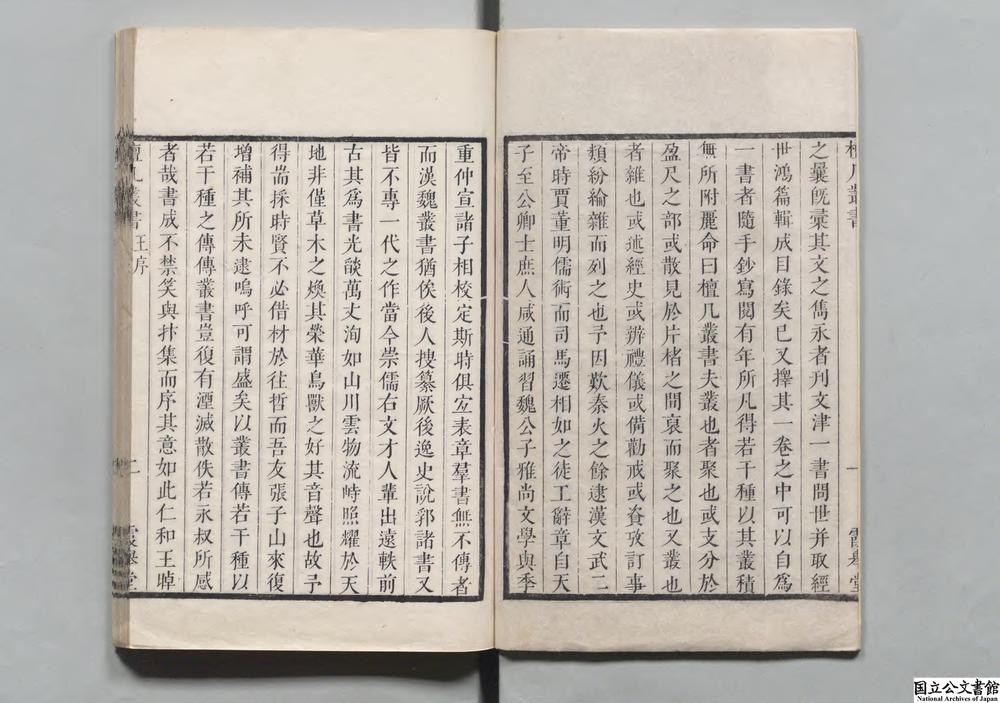 檀几叢書
一
霞舉堂
之曩旣彚其文之雋永者刊文津一書問世并取經
世鴻篇輯成目錄矣已又擇其一卷之中可以自爲
一書者隨手鈔寫閱有年所凡得若干種以其叢積
無所附麗命曰檀几叢書夫叢也者聚也或支分於
盈尺之部或散見於片楮之間裒而聚之也又叢也
者雜也或述經史或辨禮儀或備勸戒或資攷訂事
類紛綸雜而列之也予因歎秦火之餘逮漢文武二
帝時賈董明儒術而司馬遷相如之徒工辭章自天
子至公卿士庶人咸通誦習魏公子雅尚文學與季
重仲宣諸子相校定斯時俱宏表章羣書無不傳者
而漢魏叢書猶俟後人搜纂厥後逸史說郛諸書又
皆不專一代之作當今崇儒右文才人輩出遠軼前
古其爲書光燄萬丈洵如山川雲物流峙照耀於天
地非僅草木之煥其榮華鳥獸之好其音聲也故予
得耑採時賢不必借材於往哲而吾友張子山來復
增補其所未逮嗚呼可謂盛矣以叢書傳若干種以
若干種之傳傳叢書豈復有湮滅散佚若永叔所感
者哉書成不禁笑與抃集而序其意如此仁和王晫
檀几叢書 王序
二
霞舉堂
国立公文書館
National Archives of Japan